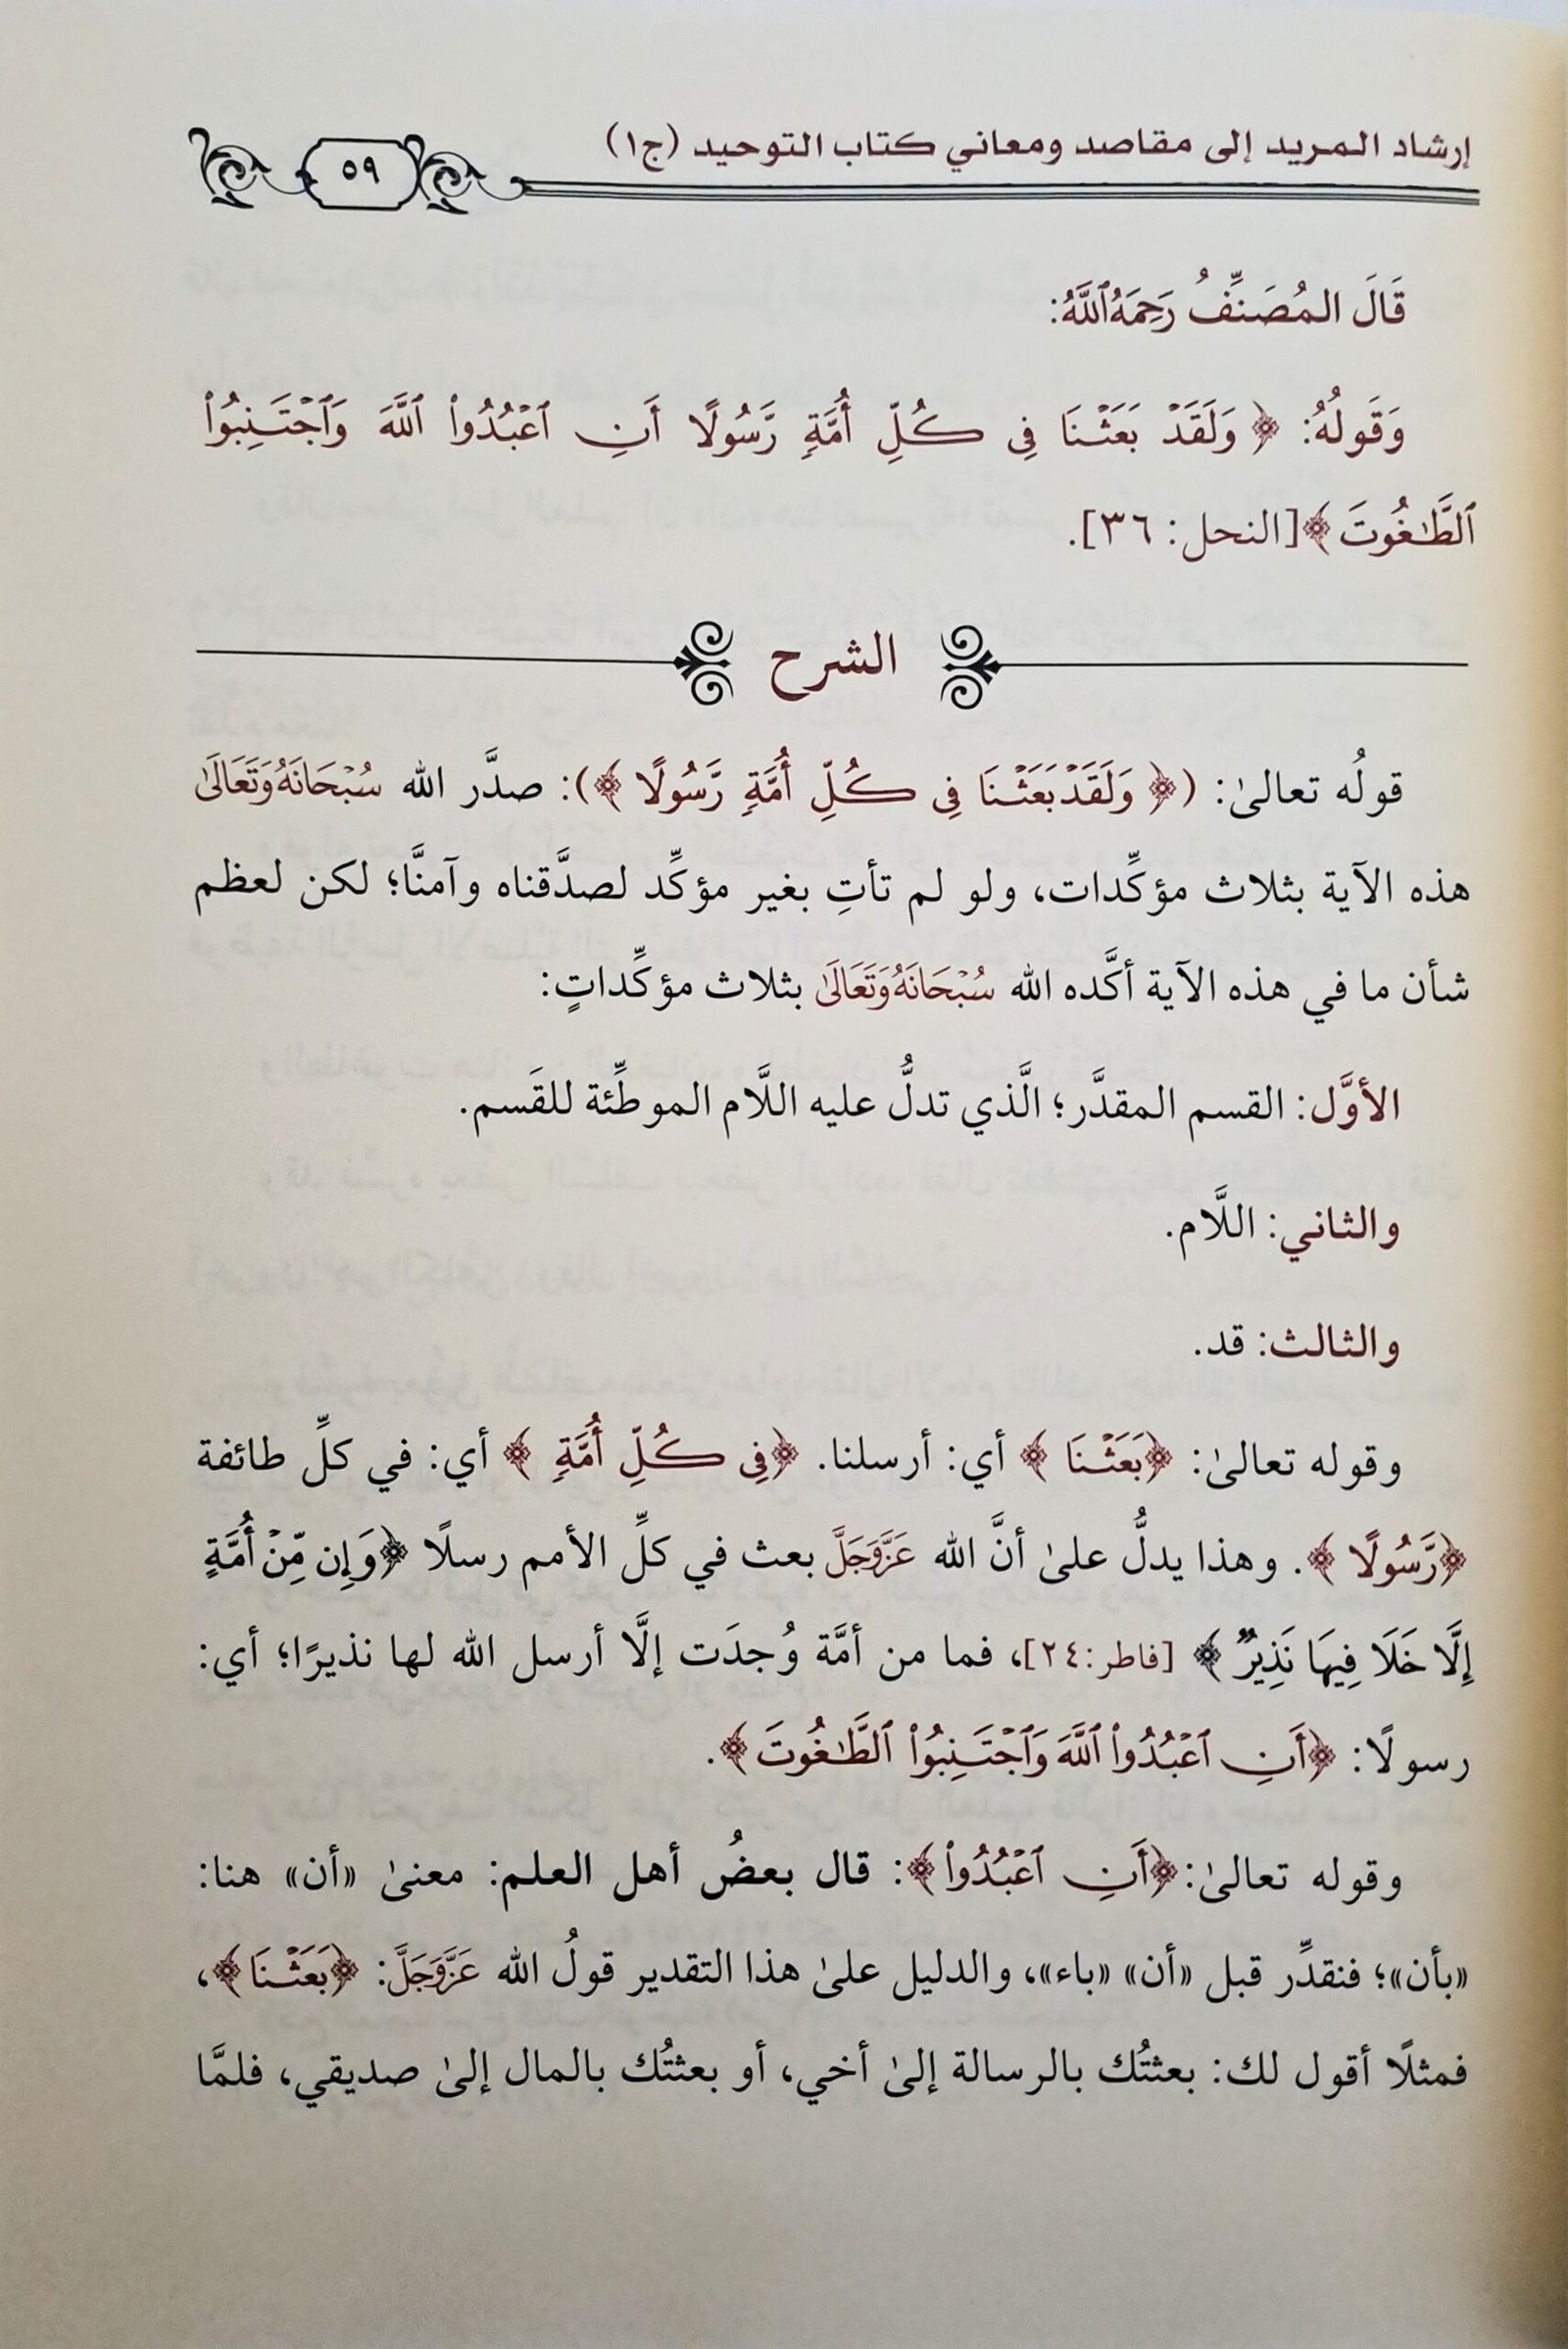 إرشاد المريد إلى مقاصد ومعاني كتاب التوحيد (ج١)
٥٩
قَالَ المُصَنِّفُ رَحِمَهُ ٱللَّهُ:
وَقَولُهُ: ﴿ وَلَقَدۡ بَعَثۡنَا فِي كُلِّ أُمَّةٖ رَّسُولًا أَنِ ٱعۡبُدُواْ ٱللَّهَ وَٱجۡتَنِبُواْ
ٱلطَّٰغُوتَ ﴾[النحل: ٣٦].
الشرح
قولُه تعالىٰ: (﴿ وَلَقَدۡ بَعَثۡنَا فِي كُلِّ أُمَّةٖ رَّسُولًا ﴾): صدَّر الله سُبۡحَانَهُ وَتَعَالَىٰ
هذه الآية بثلاث مؤكِّدات، ولو لم تأتِ بغير مؤكِّد لصدَّقناه وآمنَّا؛ لكن لعظم
شأن ما في هذه الآية أكَّده الله سُبۡحَانَهُ وَتَعَالَىٰ بثلاث مؤكِّداتٍ:
الأوَّل: القسم المقدَّر؛ الَّذي تدلُّ عليه اللَّام الموطِّئة للقَسم.
والثاني: اللَّام.
والثالث: قد.
وقوله تعالىٰ: ﴿بَعَثۡنَا ﴾ أي: أرسلنا. ﴿فِي كُلِّ أُمَّةٖ ﴾ أي: في كلِّ طائفة
﴿رَّسُولًا ﴾. وهذا يدلُّ علىٰ أنَّ الله عَزَّوَجَلَّ بعث في كلِّ الأمم رسلًا ﴿وَإِن مِّنۡ أُمَّةٍ
إِلَّا خَلَا فِيهَا نَذِيرٞ ﴾ [فاطر:٢٤]، فما من أمَّة وُجدَت إلَّا أرسل الله لها نذيرًا؛ أي:
رسولًا: ﴿أَنِ ٱعۡبُدُواْ ٱللَّهَ وَٱجۡتَنِبُواْ ٱلطَّٰغُوتَ ﴾.
وقوله تعالىٰ:﴿أَنِ ٱعۡبُدُواْ﴾: قال بعضُ أهل العلم: معنىٰ «أن» هنا:
«بأن»؛ فنقدِّر قبل «أن» «باء»، والدليل علىٰ هذا التقدير قولُ الله عَزَّوَجَلَّ: ﴿بَعَثۡنَا﴾،
فمثلًا أقول لك: بعثتُك بالرسالة إلىٰ أخي، أو بعثتُك بالمال إلىٰ صديقي، فلمَّا